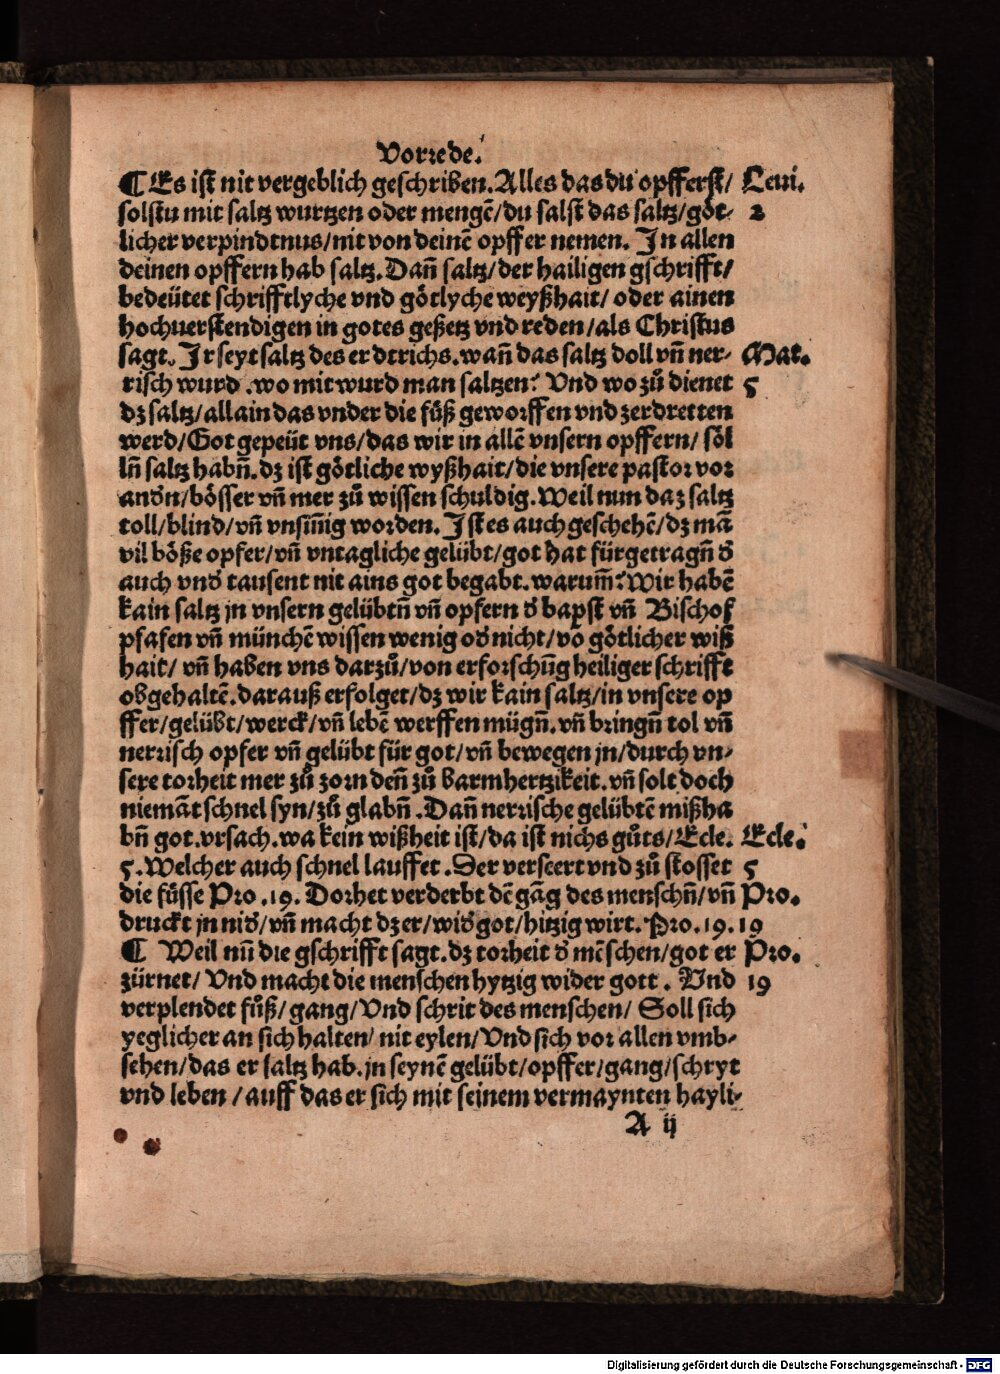 Vorrede.
¶ Es ist nit vergeblich geschriben. Alles das du opfferst/ Leui.
solstu mit saltz wurtzen oder mengē/du salst das saltz/göt- 2
licher verpindtnus/nit von deinē opffer nemen. In allen
deinen opffern hab saltz. Dañ saltz/der hailigen gschrifft/
bedeütet schrifftlyche vnd götlyche weyßhait/ oder ainen
hochuerstendigen in gotes geßetz vnd reden/als Christus
sagt. Ir seyt saltz des erdtrichs. wañ das saltz doll vñ ner- Mat.
risch wurd .wo mit wurd man saltzen? Vnd wo zů dienet 5
dz saltz/allain das vnder die fůß geworffen vnd zerdretten
werd/Got gepeüt vns/das wir in allē vnsern opffern/ söl
lñ saltz habñ. dz ist götliche wyßhait/die vnsere pastor vor
andn/bösser vñ mer zů wissen schuldig. Weil nun daz saltz
toll/blind/vñ vnsiñig worden. Ist es auch geschehē/dz mā
vil böße opfer/vñ vntagliche gelübt/got hat fürgetragñ d̄
auch vnd̄ tausent nit ains got begabt. warum̄? Wir habē
kain saltz jn vnsern gelübtñ vñ opfern d̄ bapst vñ Bischof
pfafen vñ münchē wissen wenig od̄ nicht/vo götlicher wiß
hait/ vñ haben vns darzů/von erforschūg heiliger schrifft
obgehaltē. darauß erfolget/dz wir kain saltz/in vnsere op
ffer/gelübt/werck/vñ lebē werffen mügñ. vñ bringñ tol vñ
nerrisch opfer vñ gelübt für got/vñ bewegen jn/durch vn-
sere torheit mer zů zorn deñ zů barmhertzikeit. vñ solt doch
niemāt schnel syn/zů glabñ. Dañ nerrische gelübtē mißha
bñ got. vrsach. wa kein wißheit ist/da ist nichs gůts/Ecle. Ecle.
5. Welcher auch schnel lauffet. Der verseert vnd zů stosset 5
die füsse Pro .19. Dorhet verderbt dē gāg des menschñ/vñ Pro.
druckt jn nid̄/vñ macht dz er/wid̄ got/hitzig wirt. Pro.19. 19
¶ Weil nū die gschrifft sagt. dz torheit d̄ mēschen/got er Pro.
zürnet/ Vnd macht die menschen hytzig wider gott. Vnd 19
verplendet füß/gang/Vnd schrit des menschen/ Soll sich
yeglicher an sich halten/ nit eylen/Vnd sich vor allen vmb-
sehen/das er saltz hab. jn seynē gelübt/opffer/gang/schryt
vnd leben /auff das er sich mit seinem vermaynten hayli-
A ij
Digitalisierung gefördert durch die Deutsche Forschungsgemeinschaft - DFG